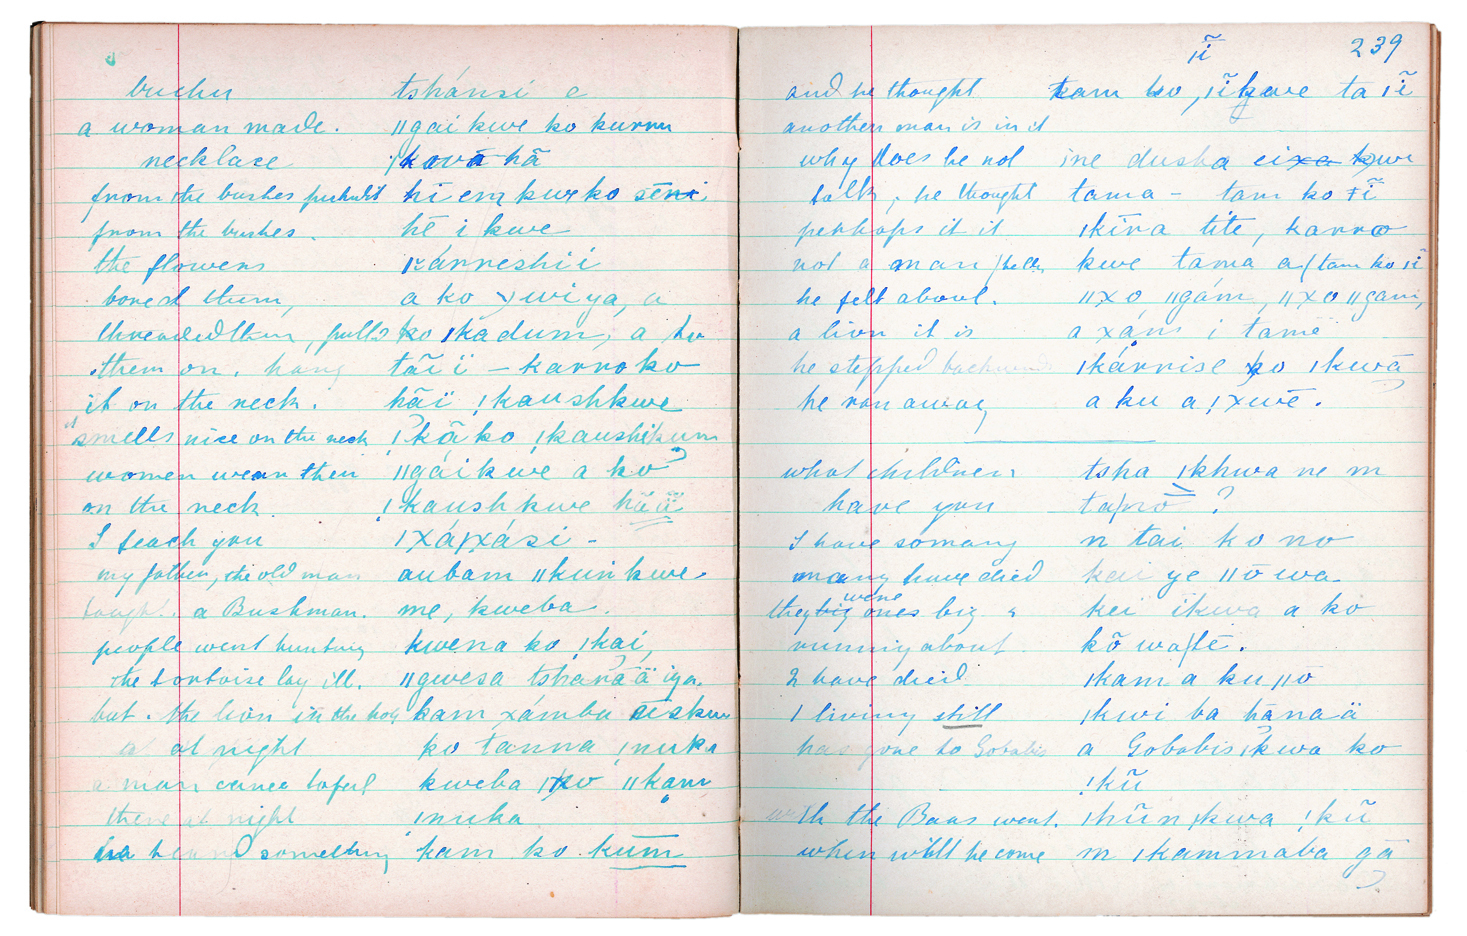 buchu tshánsi e
a woman made. ǁgaikwe ko kurru
necklace ǀkovā hã
from the bushes pukult hi em kwe ko
from the bushes. hē i kwe
the flowers ǀkárreshií
bored them, a ko wiya, a
threaded them, pulls ko ǀkadum, a ko
them on. hang tãiï – karroko
it on the neck. hãï ǃkaushkwe
it smells nice on the neck ǀkã ko ǀkaushikum
women wear them ǁgáikwe a ko
on the neck. ǃkaushkwe hãä
I teach you ǀxáǀxási –
my father, the old man aubam ǁkuikwe.
taught. a Bushman. me, kweba.
people went hunting kwena ko ǀkai,
the tortoise lay ill. ǁgwesa tshárãä iya.
but. the lion in the hole kam xámba
at night ko tanna ǀnuka
a man came to feel kweba ǀko ǁkam
there at night ǀnuka
he heard something kam ko kūm
239
ǀĩ
and he thought kam ko, ǀĩkwe ta ǀĩ
another man is in it
why does he not ine dusha
talk, he thought tama – tam ko ǀĩ
perhaps it is ǀkĩra tite, karro
not a man kwe tama a (tam ko ǀĩ
he felt about. ǁxo ǁgám, ǁxo ǁgam,
a lion it is a xáms i tamë
he stepped backwards ǀkárrise ko ǀkwã
he ran away a ku a ǃxwē.
what children tsha ǀkhwa ne m
have you taǀnō ?
I have so many n tai ko no
many have died kei ye ǁō wa.
were
they big ones big & kei ïkwa a ko
running about kõ waǀtē.
2 have died ǀkam a ku ǁō
1 living still ǀkwi ba hãnaä
has gone to Gobabis a Gobabis ǀkwa ko
ǃkũ
with the Baas went. ǀhũn ǀkwa ǃkũ
when will he come m ǀkammaba gã